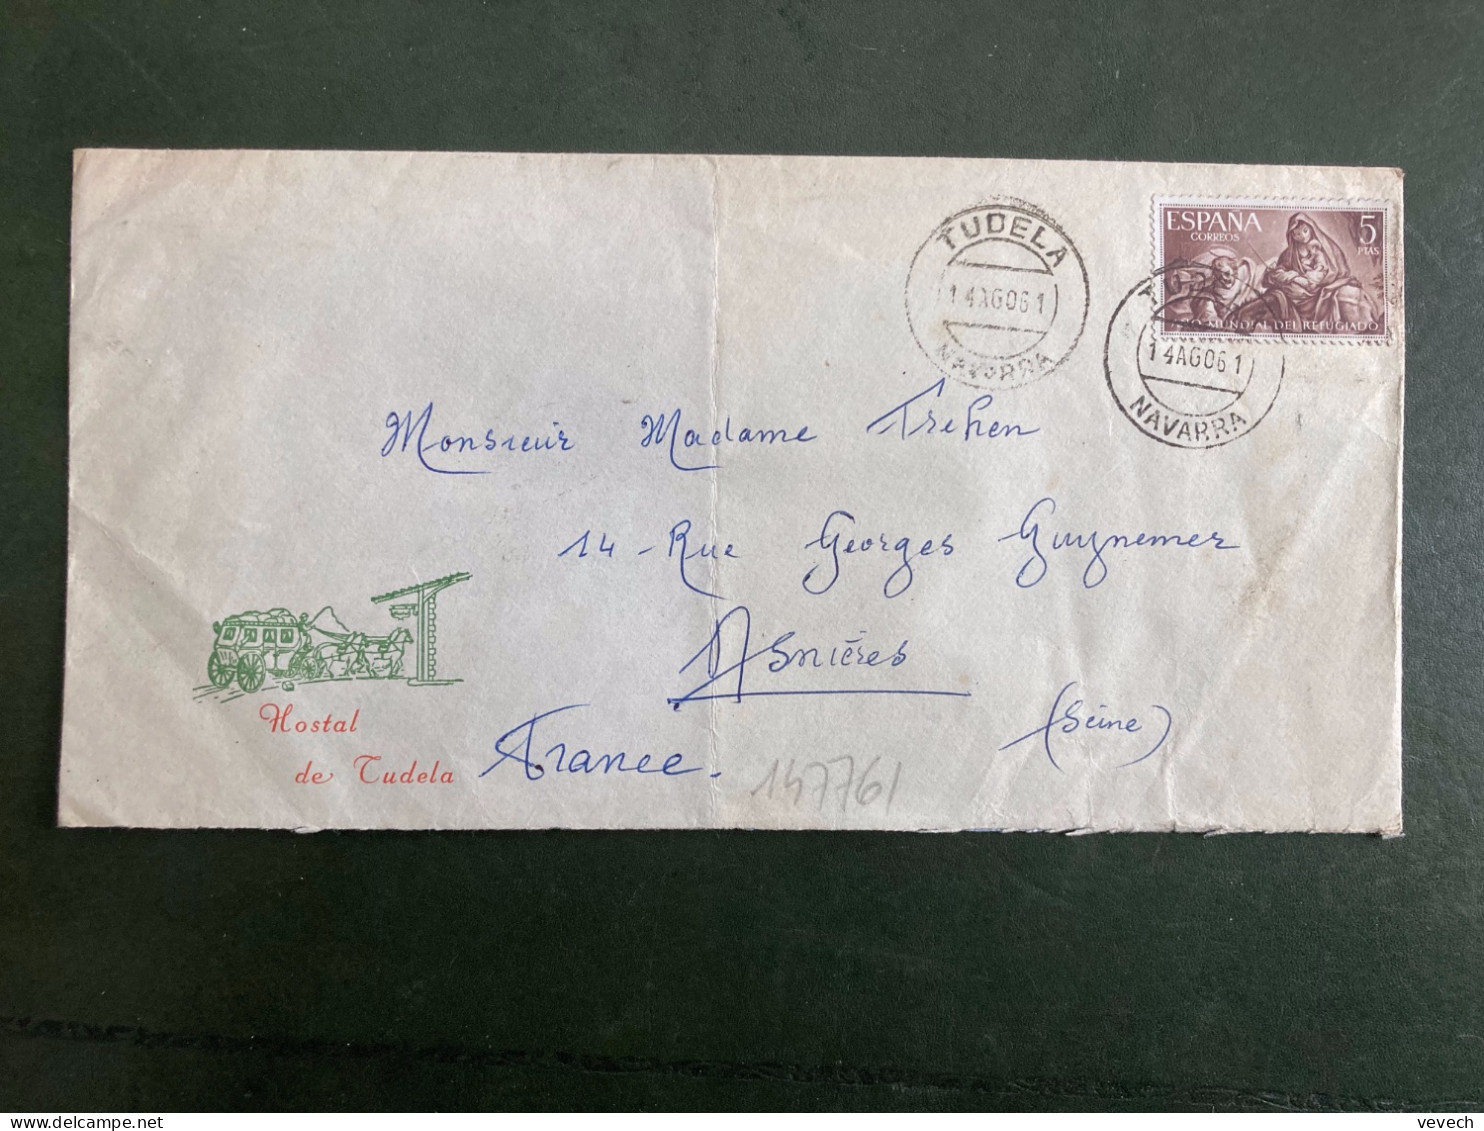 TUDELA
14AGO61
NAVARRA
ESPAÑA
CORREOS
5
PTAS
MUNDIAL DEL REFUGIADO
14AGO61
NAVARRA
Monsieur Madame Trehen
14 - Rue Georges Guynemer
Asnières
(Seine)
France.
Hostal
de Tudela
147761
vevech